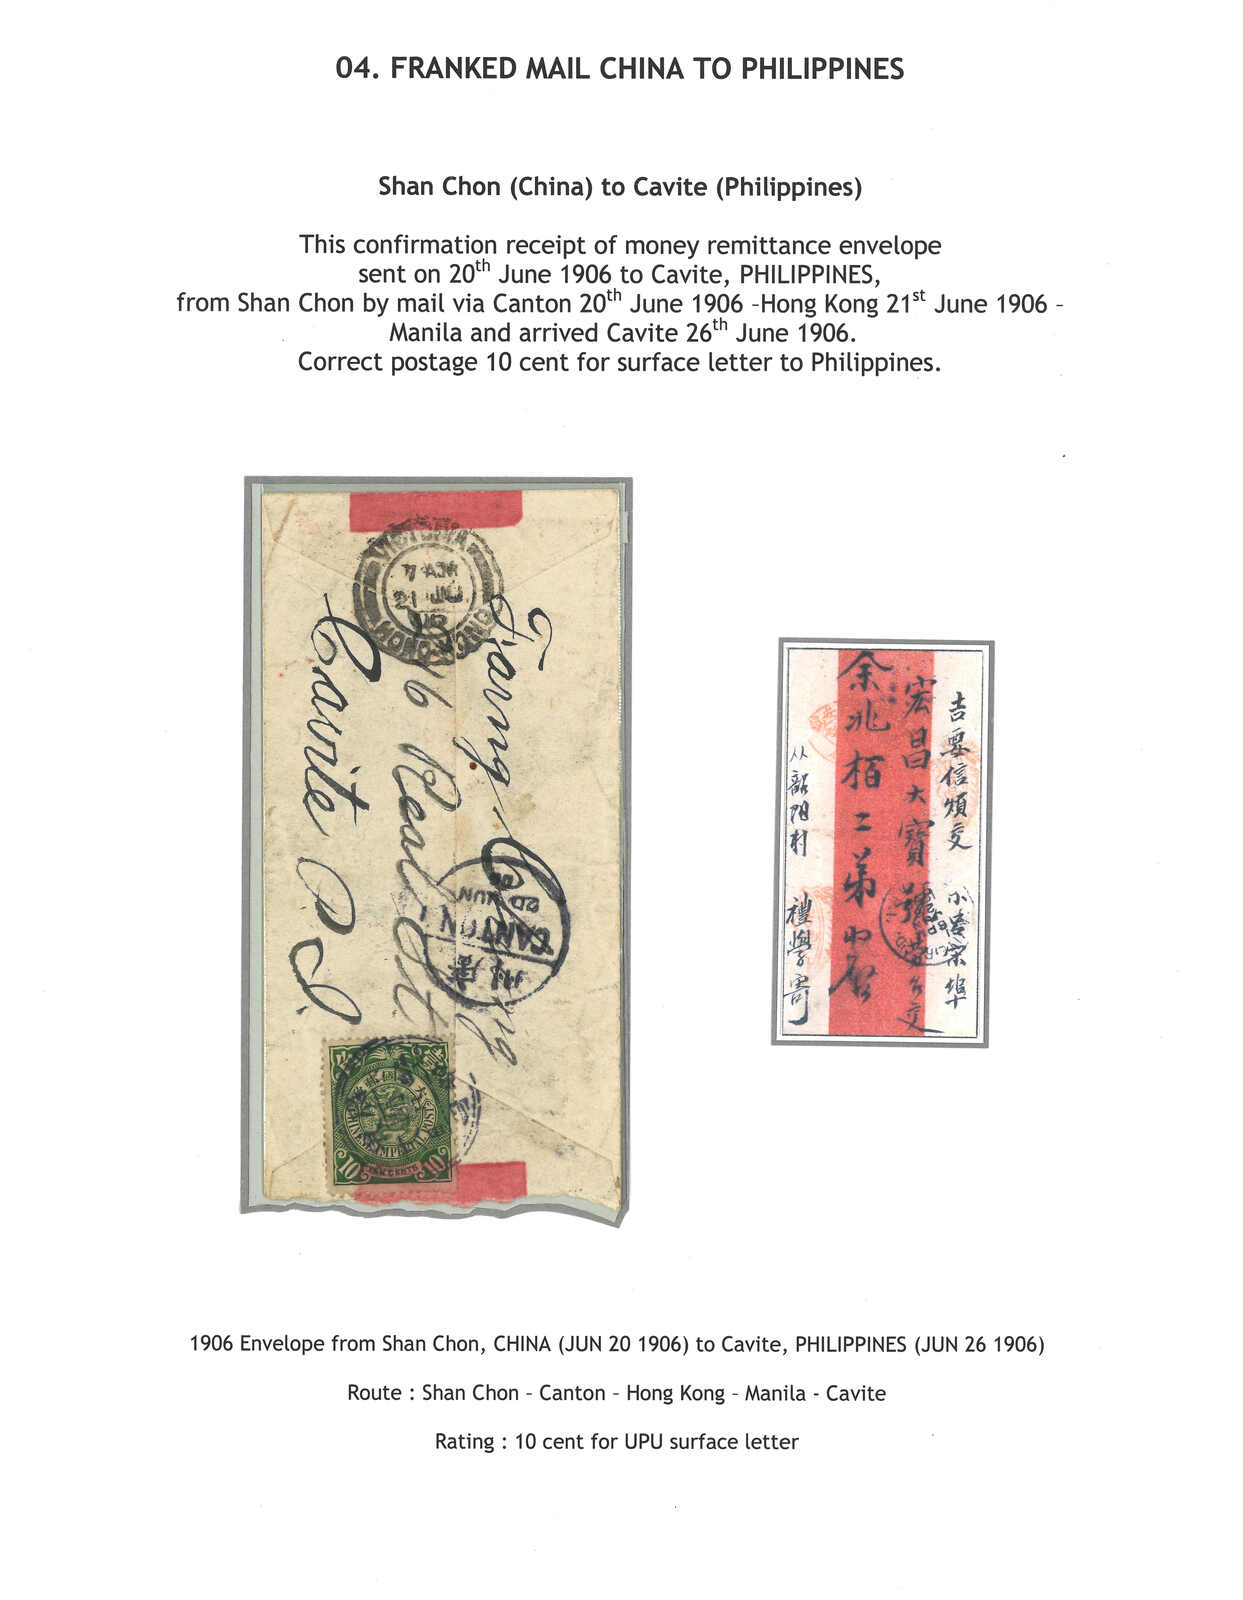 04. FRANKED MAIL CHINA TO PHILIPPINES
Shan Chon (China) to Cavite (Philippines)
This confirmation receipt of money remittance envelope
sent on 20th June 1906 to Cavite, PHILIPPINES,
from Shan Chon by mail via Canton 20th June 1906 –Hong Kong 21st June 1906 –
Manila and arrived Cavite 26th June 1906.
Correct postage 10 cent for surface letter to Philippines.
VICTORIA
7 AM
21 JU
06
HONG-KONG
Cavite P. I.
16 Real St
CANTON 1
20 JUN
06
CHINESE IMPERIAL POST
10
10
吉要信煩交
小呂宋埠
宏昌大寶號
交
余兆栢二弟
禮學寄
1906 Envelope from Shan Chon, CHINA (JUN 20 1906) to Cavite, PHILIPPINES (JUN 26 1906)
Route : Shan Chon – Canton – Hong Kong – Manila - Cavite
Rating : 10 cent for UPU surface letter